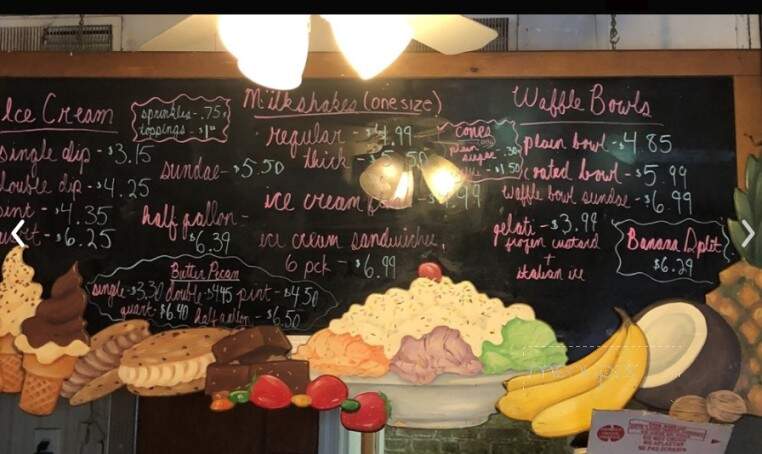 Ice Cream
single dip - $3.15
double dip - $4.25
pint - $4.35
- $6.25
sprinkles - .75
toppings - $1
sundae - $5.50
half gallon -
$6.39
Butter Pecan
single - $3.30 double - $4.45 pint - $4.50
quart - $6.40 half gallon - $6.50
Milkshakes (one size)
regular - $4.99
thick - $5.50
ice cream
ice cream sandwiches,
6 pck - $6.99
Cones
plain
sugar - .30
- $1.50
Waffle Bowls
plain bowl - $4.85
coated bowl - $5.99
waffle bowl sundae - $6.99
gelati - $3.99
frozen custard
+
italian ice
Banana Split
$6.29